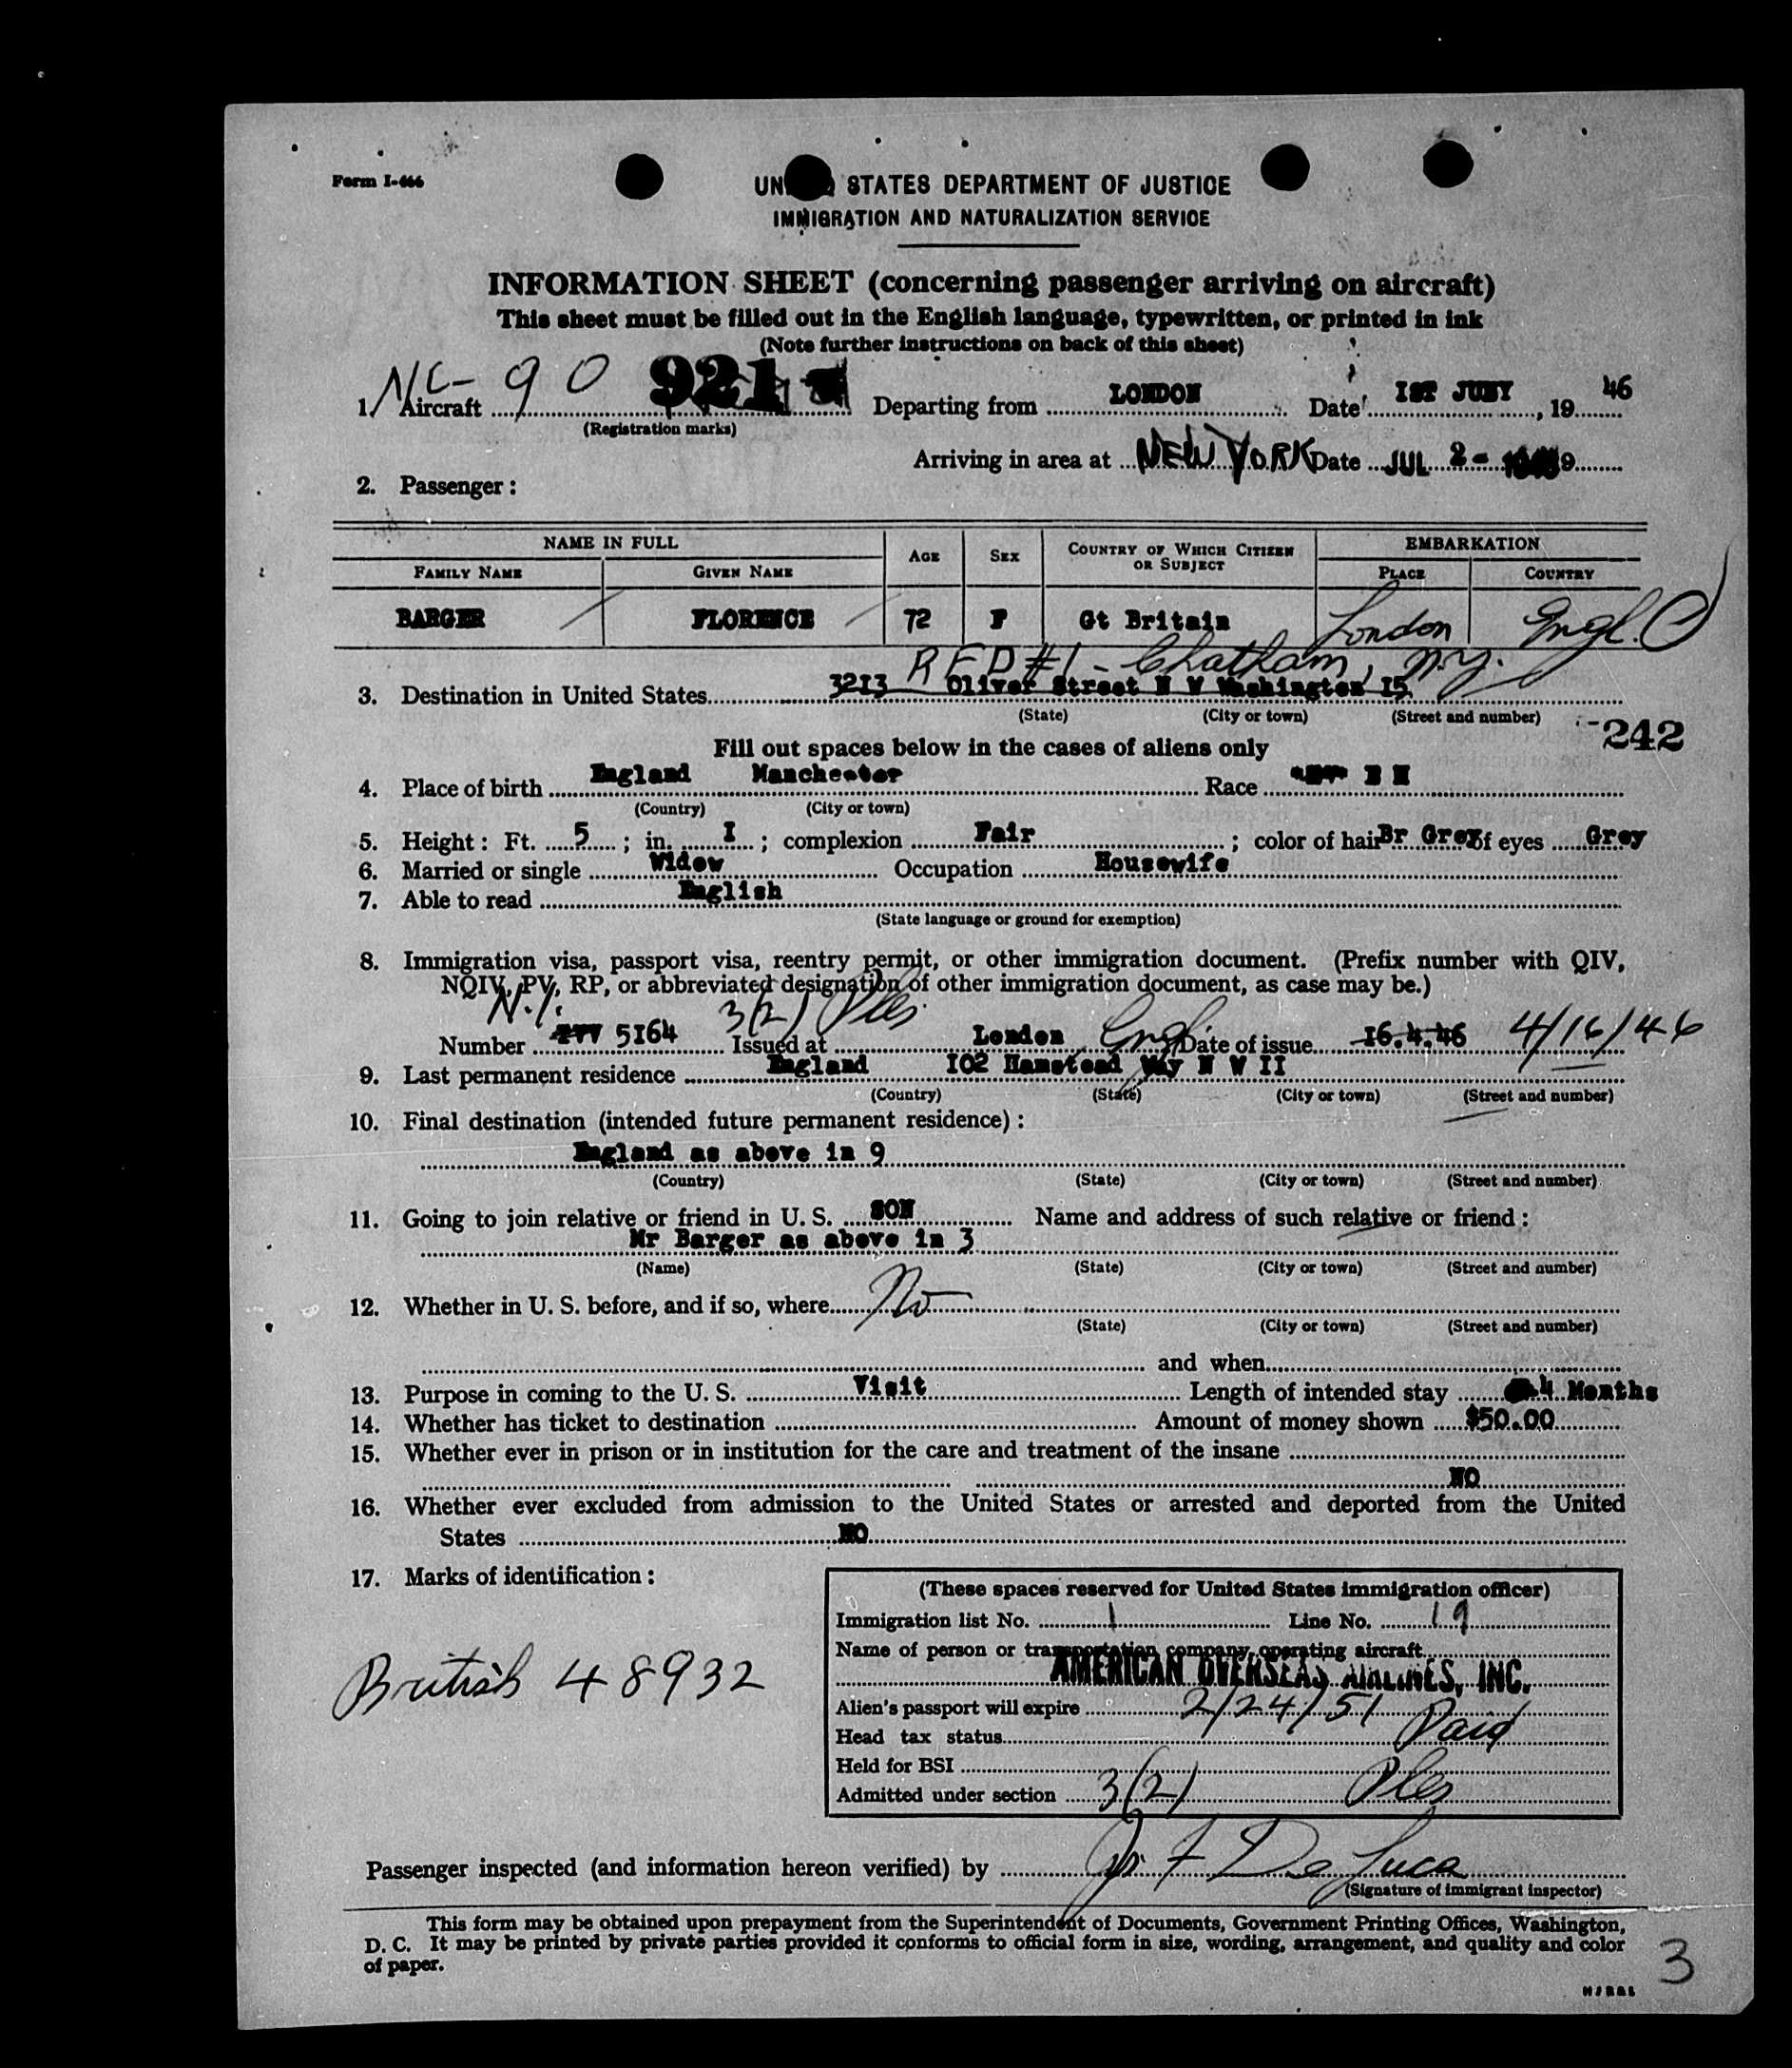 Form I-466
UNITED STATES DEPARTMENT OF JUSTICE
IMMIGRATION AND NATURALIZATION SERVICE
INFORMATION SHEET (concerning passenger arriving on aircraft)
This sheet must be filled out in the English language, typewritten, or printed in ink
(Note further instructions on back of this sheet)
1. Aircraft NC- 90 921 Departing from LONDON Date 1ST JULY, 19 46
(Registration marks)
Arriving in area at NEW YORK Date JUL 2 - 19
2. Passenger:
NAME IN FULL AGE SEX COUNTRY OF WHICH CITIZEN OR SUBJECT EMBARKATION
FAMILY NAME GIVEN NAME PLACE COUNTRY
BARGER FLORENCE 72 F Gt Britain London Engl.
RFD #1 - Chatham, N.Y.
3. Destination in United States 3213 Oliver Street N W Washington I5
(State) (City or town) (Street and number)
-242
Fill out spaces below in the cases of aliens only
4. Place of birth England Manchester Race
(Country) (City or town)
5. Height: Ft. 5; in. I; complexion Fair; color of hair Br Grey of eyes Grey
6. Married or single Widow Occupation Housewife
7. Able to read English
(State language or ground for exemption)
8. Immigration visa, passport visa, reentry permit, or other immigration document. (Prefix number with QIV,
NQIV, PV, RP, or abbreviated designation of other immigration document, as case may be.)
N.I. 3(2) Ples
Number 5I64 Issued at London Engl. Date of issue I6.4.46 4/16/46
9. Last permanent residence England I02 Hamstead Way N W II
(Country) (State) (City or town) (Street and number)
10. Final destination (intended future permanent residence):
England as above in 9
(Country) (State) (City or town) (Street and number)
11. Going to join relative or friend in U. S. SON Name and address of such relative or friend:
Mr Barger as above in 3
(Name) (State) (City or town) (Street and number)
12. Whether in U. S. before, and if so, where No
(State) (City or town) (Street and number)
and when
13. Purpose in coming to the U. S. Visit Length of intended stay 4 Months
14. Whether has ticket to destination Amount of money shown $50.00
15. Whether ever in prison or in institution for the care and treatment of the insane
NO
16. Whether ever excluded from admission to the United States or arrested and deported from the United
States NO
17. Marks of identification:
British 48932
(These spaces reserved for United States immigration officer)
Immigration list No. 1 Line No. 19
Name of person or transportation company operating aircraft
AMERICAN OVERSEAS AIRLINES, INC.
Alien's passport will expire 2/24/51
Head tax status Paid
Held for BSI
Admitted under section 3(2) Ples
Passenger inspected (and information hereon verified) by F De Luca
(Signature of immigrant inspector)
This form may be obtained upon prepayment from the Superintendent of Documents, Government Printing Offices, Washington,
D. C. It may be printed by private parties provided it conforms to official form in size, wording, arrangement, and quality and color
of paper.
3